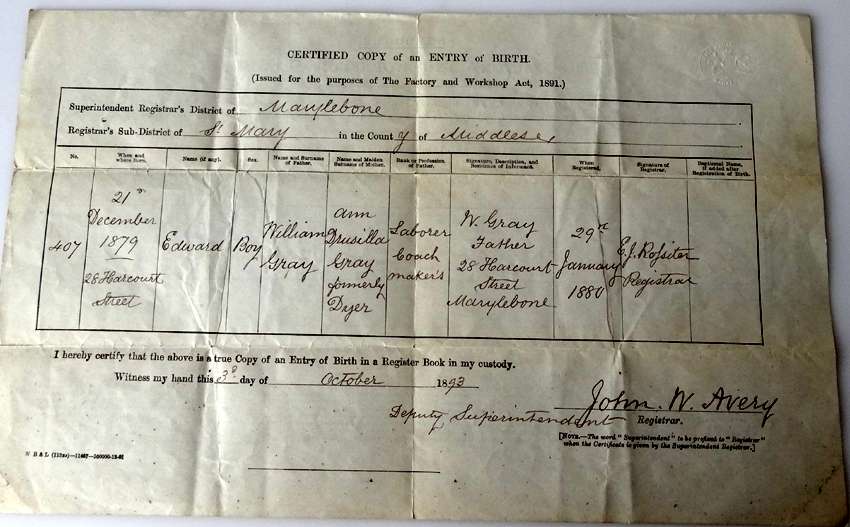 CERTIFIED COPY of an ENTRY of BIRTH.
(Issued for the purposes of The Factory and Workshop Act, 1891.)
Superintendent Registrar's District of Marylebone
Registrar's Sub-District of St. Mary in the County of Middlesex
No.
When and where Born.
Name (if any).
Sex.
Name and Surname of Father.
Name and Maiden Surname of Mother.
Rank or Profession of Father.
Signature, Description, and Residence of Informant.
When Registered.
Signature of Registrar.
Baptismal Name, if added after Registration of Birth.
407
21st
December
1879
28 Harcourt
Street
Edward
Boy
William
Gray
Ann
Drusilla
Gray
formerly
Dyer
Laborer
Coach
maker's
W. Gray
Father
28 Harcourt
Street
Marylebone
29th
January
1880
E. J. Rossiter
Registrar
I hereby certify that the above is a true Copy of an Entry of Birth in a Register Book in my custody.
Witness my hand this 3d day of October 1893
John W. Avery
Deputy Superintendent Registrar.
[NOTE.—The word "Superintendent" to be prefixed to "Registrar"
when the Certificate is given by the Superintendent Registrar.]